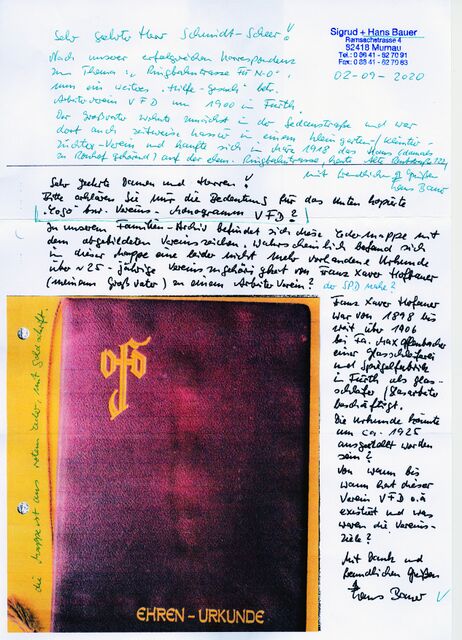 Sehr geehrter Herr Schmidt-Scheer!
Sigrud + Hans Bauer
Ramsachstrasse 4
82418 Murnau
Tel.: 0 88 41 - 62 70 91
Fax: 0 88 41 - 62 70 63
02-09-2020
Nach unserer erfolgreichen Korrespondenz
zum Thema "Ringbahntrasse für N-O"
nun ein weiteres "Hilfe-Gesuch" betr.
Arbeiterverein VFD um 1900 in Fürth.
Der Großvater wohnte zunächst in der Sedanstraße und war
dort auch zeitweise Kassier in einem Kleingarten/Kleintier-
züchter-Verein und kaufte sich in März 1918 das Haus (damals
zu Ronhof gehörend) auf der ehem. Ringbahntrasse, heute Alte
mit freundlichen Grüßen
Hans Bauer
Sehr geehrte Damen und Herren!
Bitte erklären Sie mir die Bedeutung für das unten kopierte
"Logo" bzw. Vereins-Monogramm VFD?
In unserem Familien-Archiv befindet sich diese Ledermappe mit
dem abgebildeten Vereinszeichen. Wahrscheinlich befand sich
in dieser Mappe eine leider nicht mehr vorhandene Urkunde
über ~25-jährige Vereinszugehörigkeit von Franz Xaver Hofbauer
(meinem Großvater) zu einem Arbeiterverein? der SPD nahe?
Franz Xaver Hofbauer
war von 1898 bis
weit über 1906
bei Fa. Max Offenbacher
einer Glasschleiferei
und Spiegelfabrik
in Fürth als Glas-
schleifer/Glasarbeiter
beschäftigt.
Die Urkunde könnte
um ca. 1925
ausgestellt worden
sein?
Von wann bis
wann hat dieser
Verein VFD o.ä
existiert und was
waren die Vereins-
Ziele?
Mit Dank und
freundlichen Grüßen
Hans Bauer
die Mappe ist aus rotem Leder, mit Goldschrift.
EHREN-URKUNDE